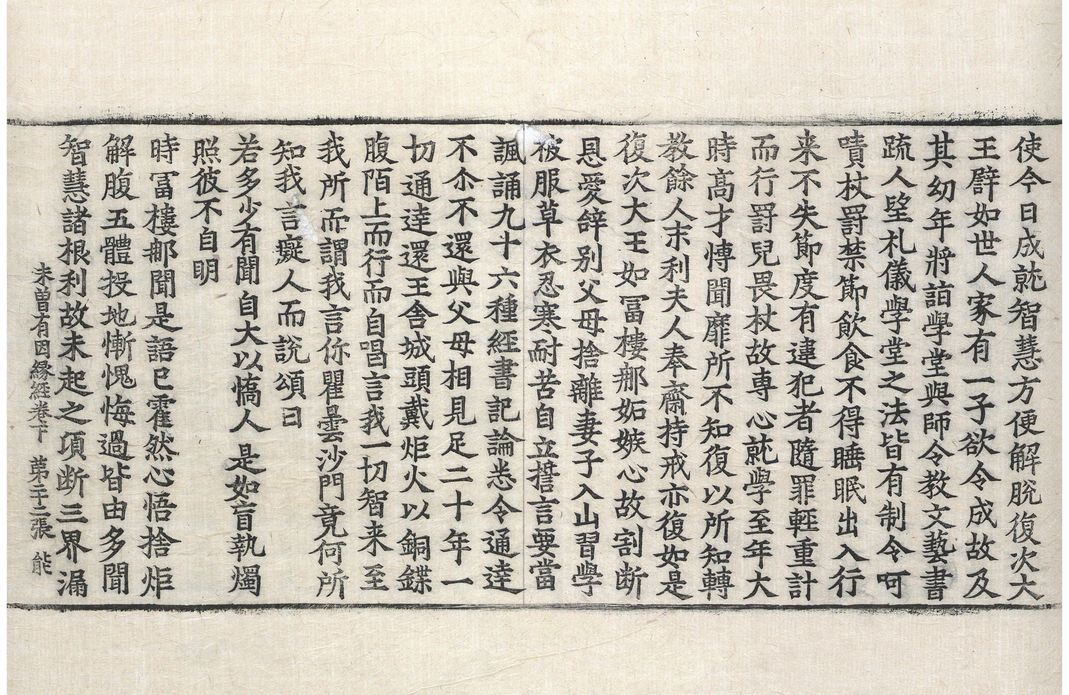 使今日成就智慧方便解脫復次大
王辟如世人家有一子欲令成故及
其幼年將詣學堂與師令教文藝書
疏人堅札儀學堂之法皆有制令呵
嘖杖罸禁節飲食不得睡眠出入行
来不失節度有違犯者隨罪輕重計
而行罸兒畏杖故専心就學至年大
時髙才愽聞靡所不知復以所知轉
教餘人末利夫人奉齋持戒亦復如是
復次大王如冨樓㢤妬嫉心故割断
恩愛辝別父母捨離妻子入山習學
被服草衣忍寒耐苦自立誓言要當
諷誦九十六種經書記論悉令通逹
不尒不還與父母相見足二十年一
切通逹還王舍城頭戴炬火以銅鍱
腹陌上而行而自唱言我一切智来至
我所而謂我言你瞿曇沙門竟何所
知我言癡人而說頌曰
若多少有聞自大以憍人 是如盲執燭
照彼不自明
時冨樓㢤聞是語已霍然心悟捨炬
解腹五體投地慚愧悔過皆由多聞
智慧諸根利故未起之項断三界漏
未曽有因縁經卷下 第二十二張 能